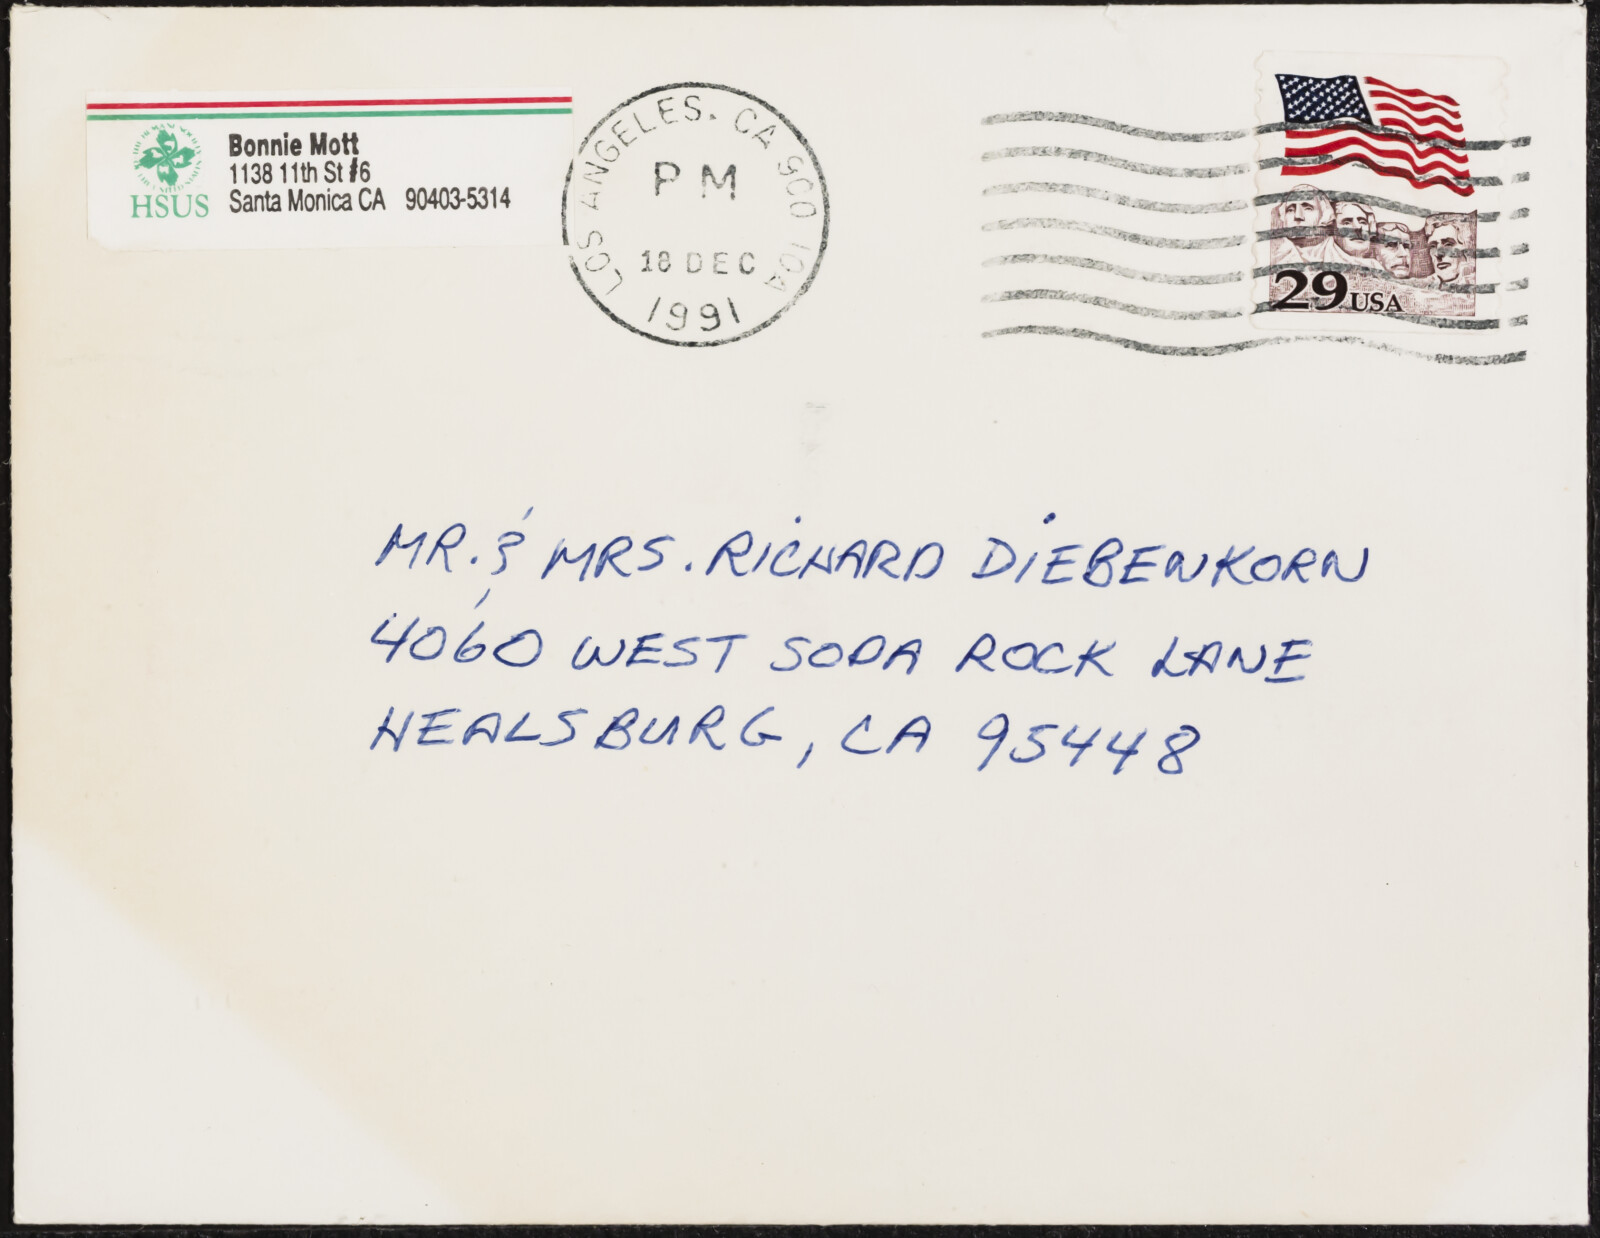 Bonnie Mott
1138 11th St #6
Santa Monica CA 90403-5314
HSUS
LOS ANGELES, CA 900 104
PM
18 DEC
1991
29 USA
MR. & MRS. RICHARD DIEBENKORN
4060 WEST SODA ROCK LANE
HEALSBURG, CA 95448